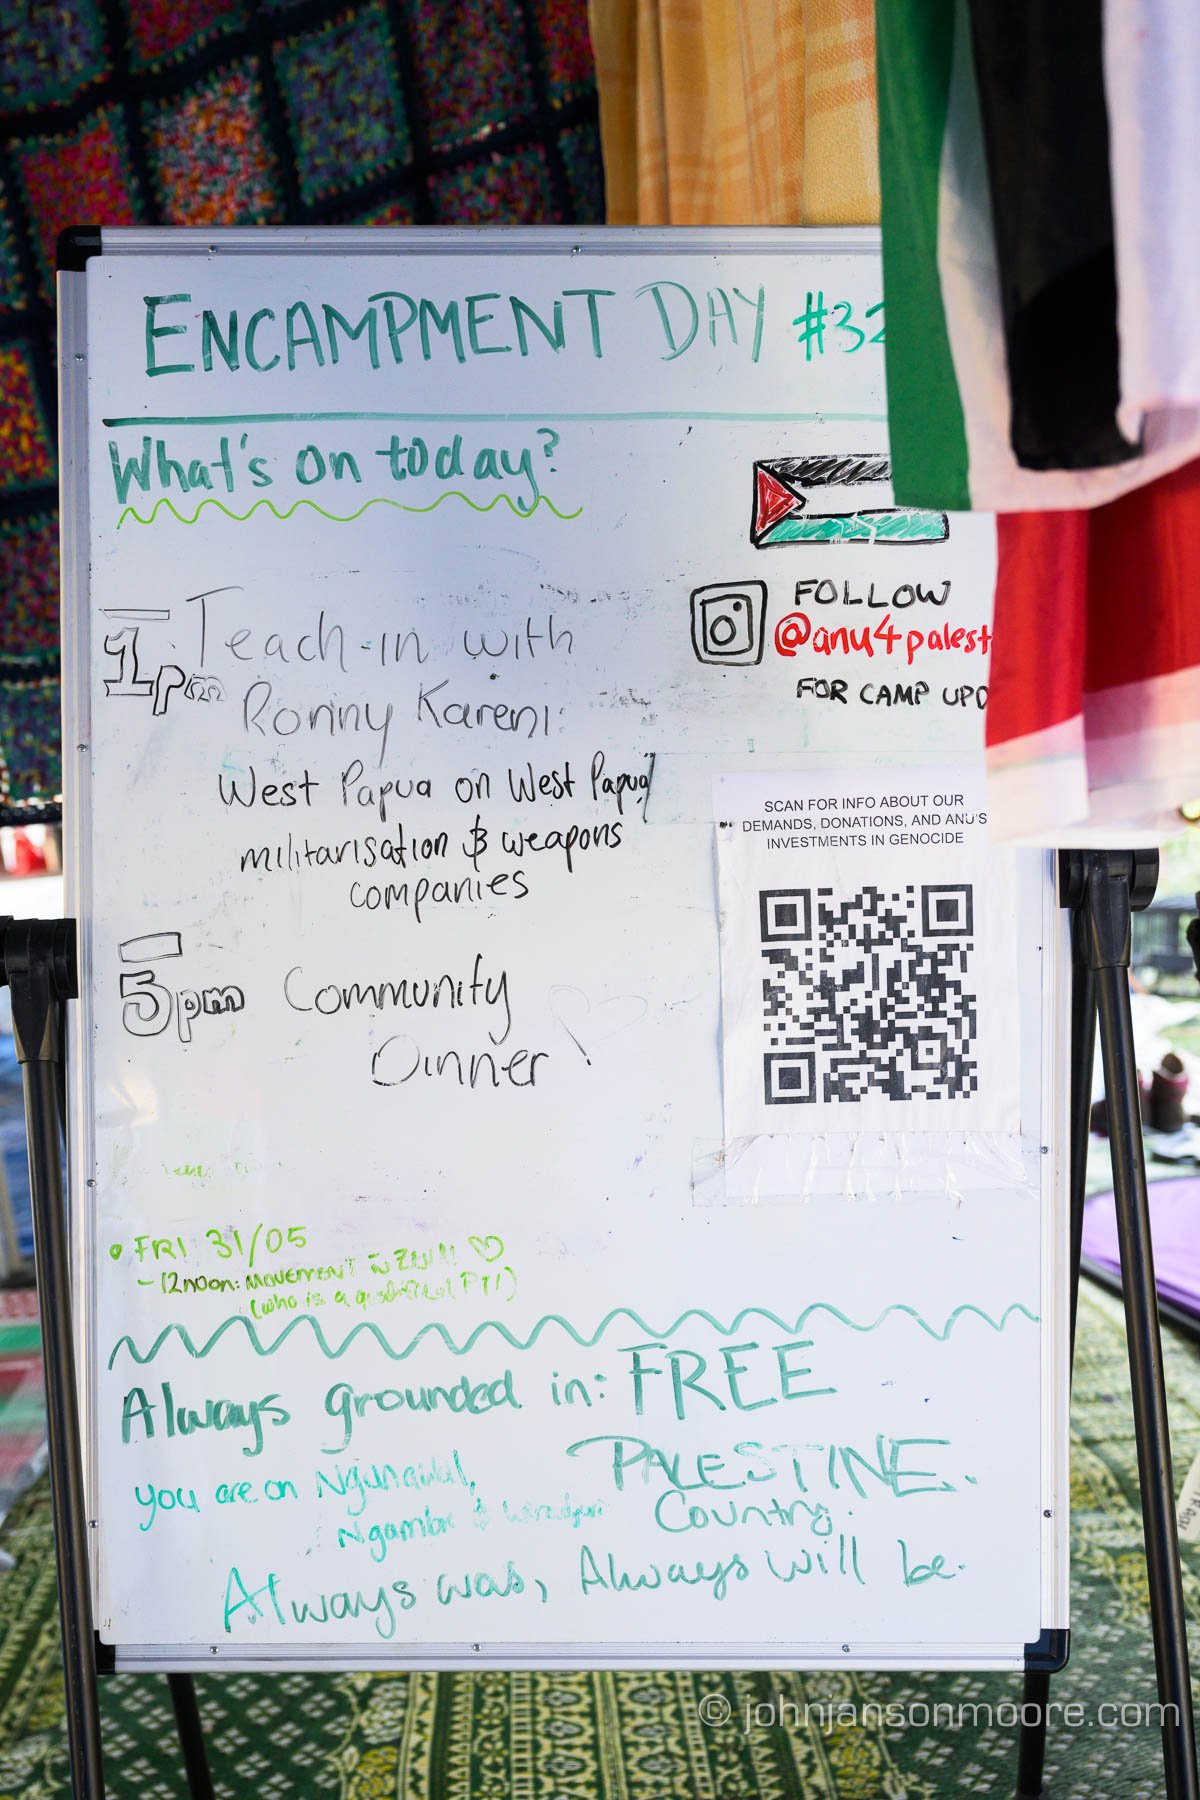 ENCAMPMENT DAY #32
What's on today?
1pm Teach-in with
Ronny Kareni:
West Papua on West Papua/
militarisation & weapons
companies
5pm Community
Dinner!
FOLLOW
@anu4palest
FOR CAMP UPD
SCAN FOR INFO ABOUT OUR
DEMANDS, DONATIONS, AND ANU'S
INVESTMENTS IN GENOCIDE
• FRI 31/05
- 12noon: MOVEMENT
(who is a qualified PT!)
Always grounded in: FREE
PALESTINE.
you are on Ngunawal,
Ngambri & Wiradjuri Country.
Always was, Always will be.
© johnjansonmoore.com